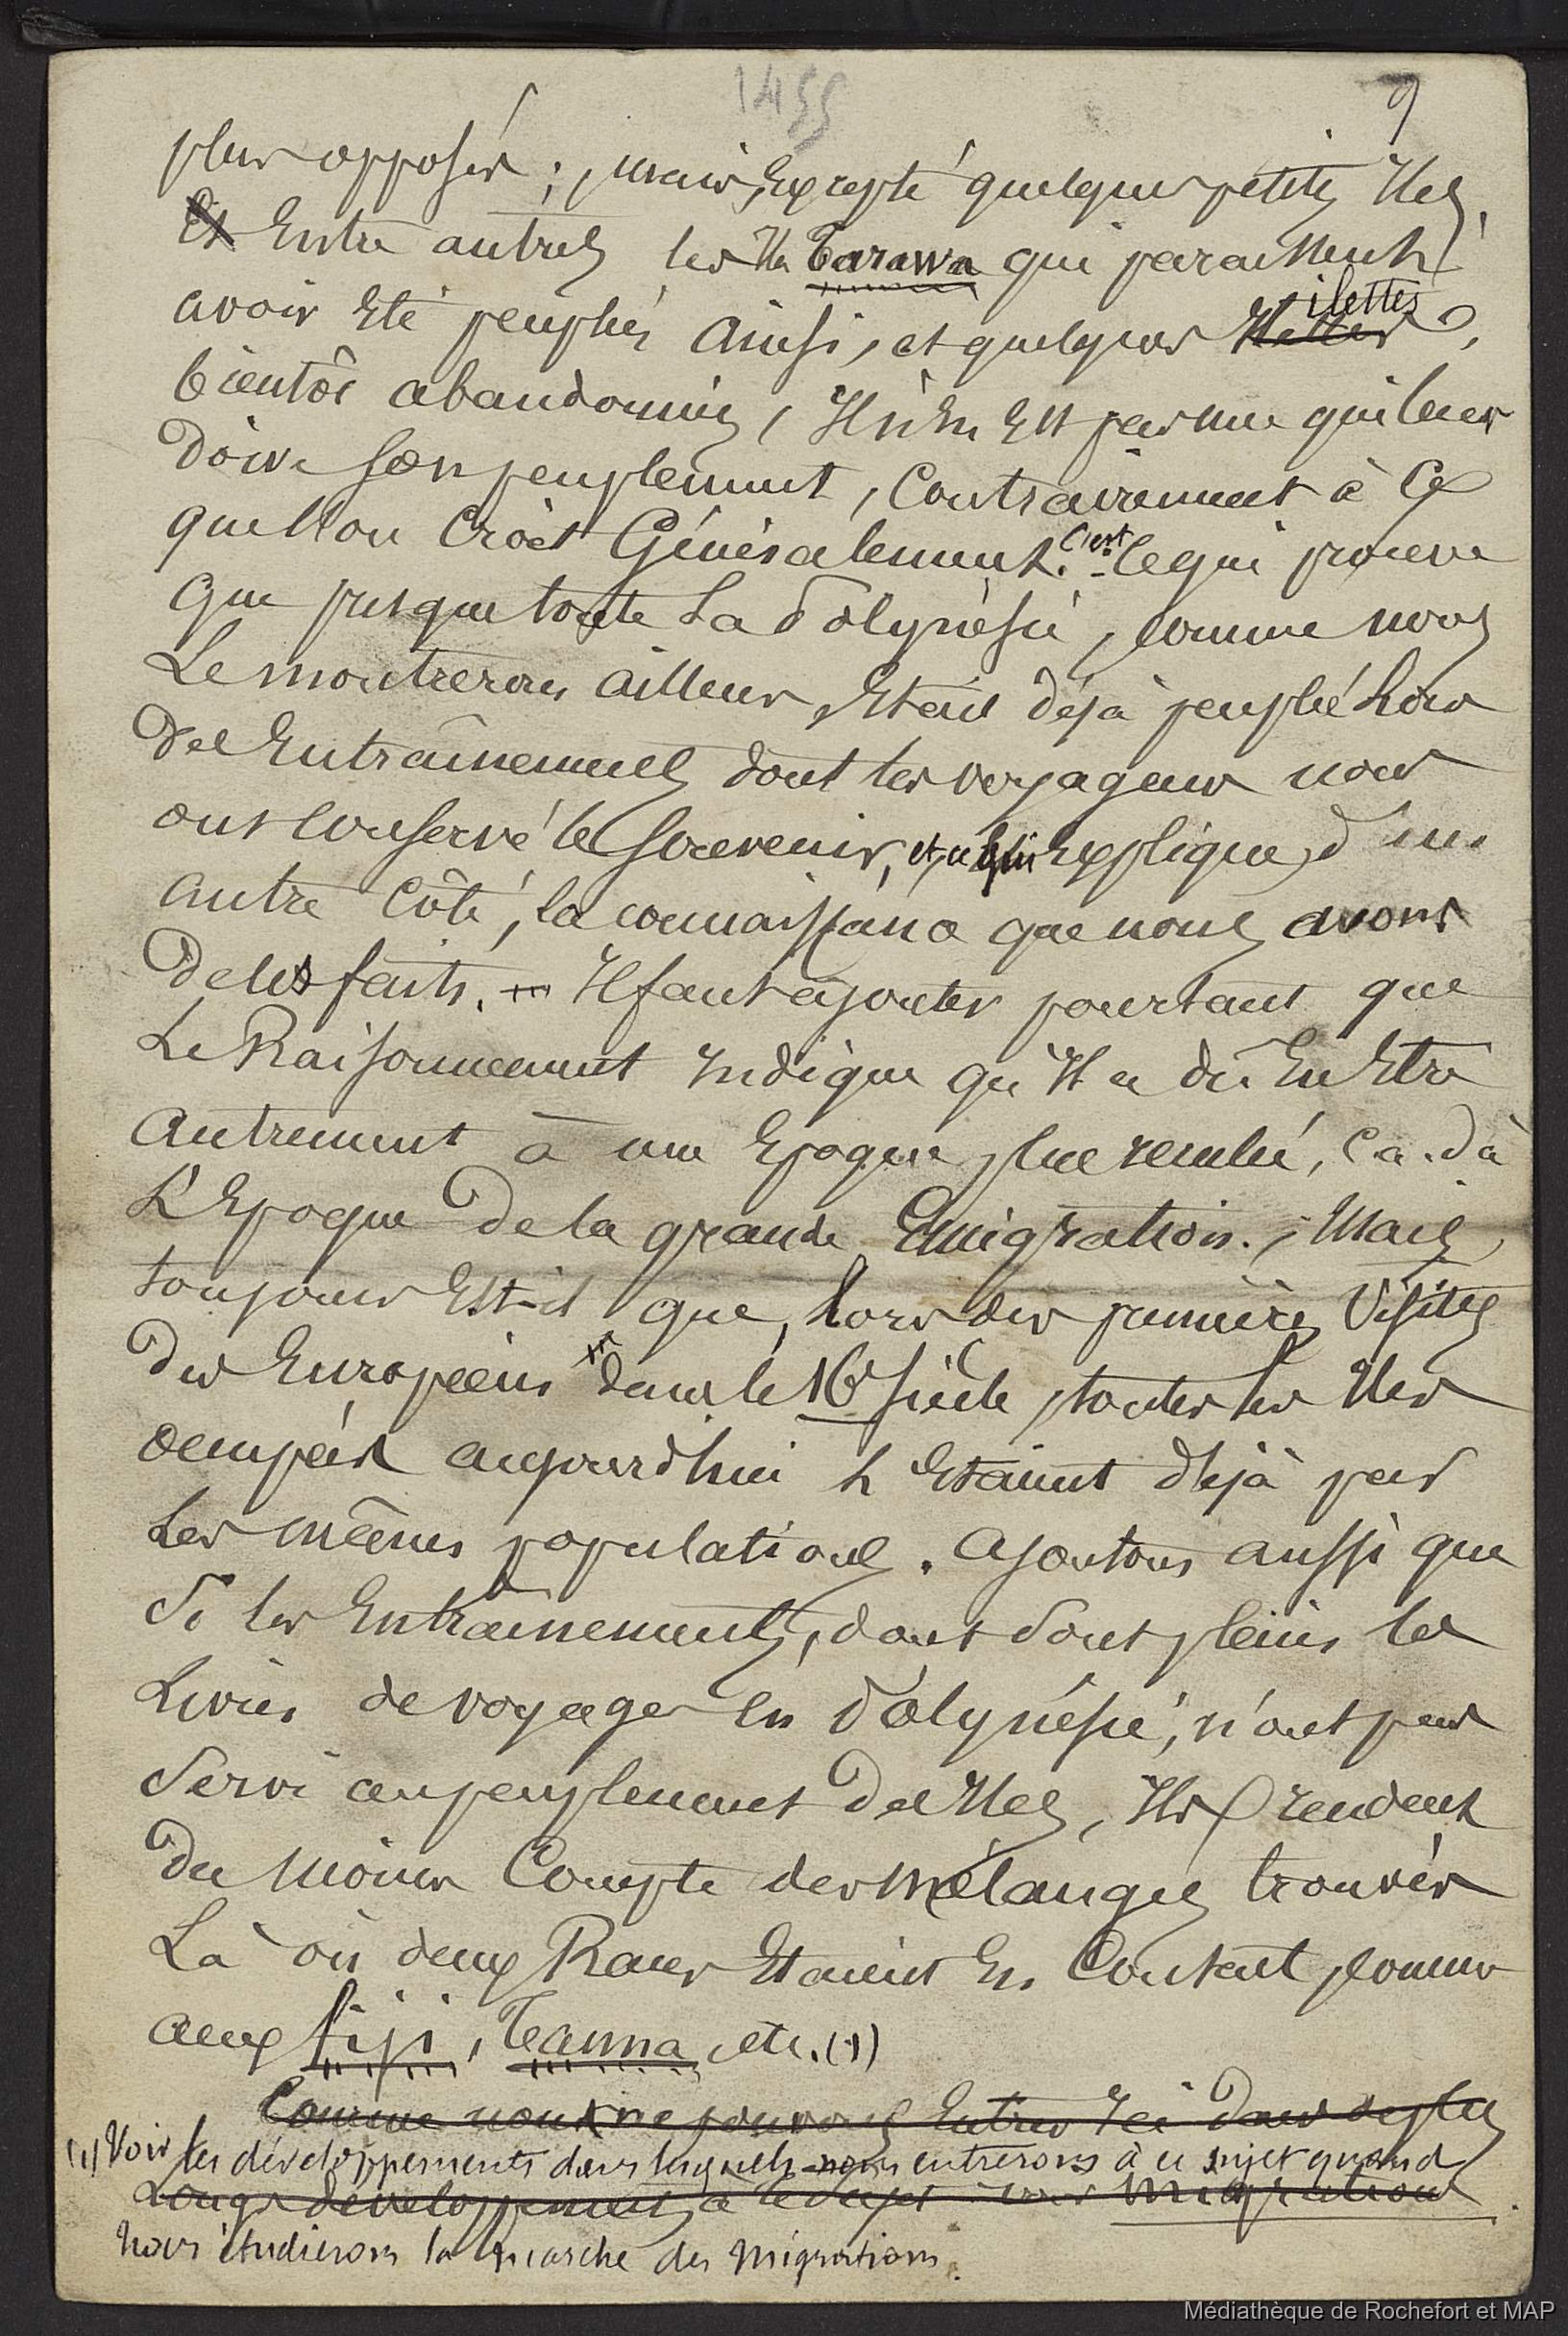 1455
9
plus opposés ; mais, Excepté quelques petites Iles,
Et Entre autres les Iles Tarawa qui paraissent
avoir Eté peuplés Ainsi, et quelques Ilettes ilettes,
bientôt abandonnées, Il n'En Est pas une qui leur
Doive son peuplement, Contrairement à Ce
que l'on Croit Généralement. C'est Ce qui prouve
que presque toute La Polynésie, Comme nous
Le montrerons ailleurs, Etait déjà peuplé hors
Des Entraînements dont les voyageurs nous
ont Conservé le souvenir, et ce qui Explique, d'un
autre Côté, la connaissance que nous avons
De les faits. — Il faut ajouter pourtant que
Le Raisonnement Indique qu'Il a dû En Etre
Autrement à une Epoque plus reculée, C.a.d à
L'Epoque De la grande Emigration. ; Mais
toujours Est-il que, lors des premières Visites
Des Européens dans le 16e siècle, toutes les Iles
occupées aujourd'hui l'Etaient déjà par
Les mêmes populations. Ajoutons aussi que
Si les Entraînements, dont sont pleins les
Livres de voyages En Polynésie, n'ont pas
Servi au peuplement Des Iles, Ils rendent
Du moins Compte des mélanges trouvés
Là où deux Races Etaient En Contact, comme
aux Fiji, Tanna, etc. (1)
Comme nous ne pouvons Entrer Ici Dans de plus
(1) Voir les développements dans lesquels nous entrerons à ce sujet quand
Longs développements, à ce sujet voir Migrations.
nous étudierons la marche des Migrations.
Médiathèque de Rochefort et MAP